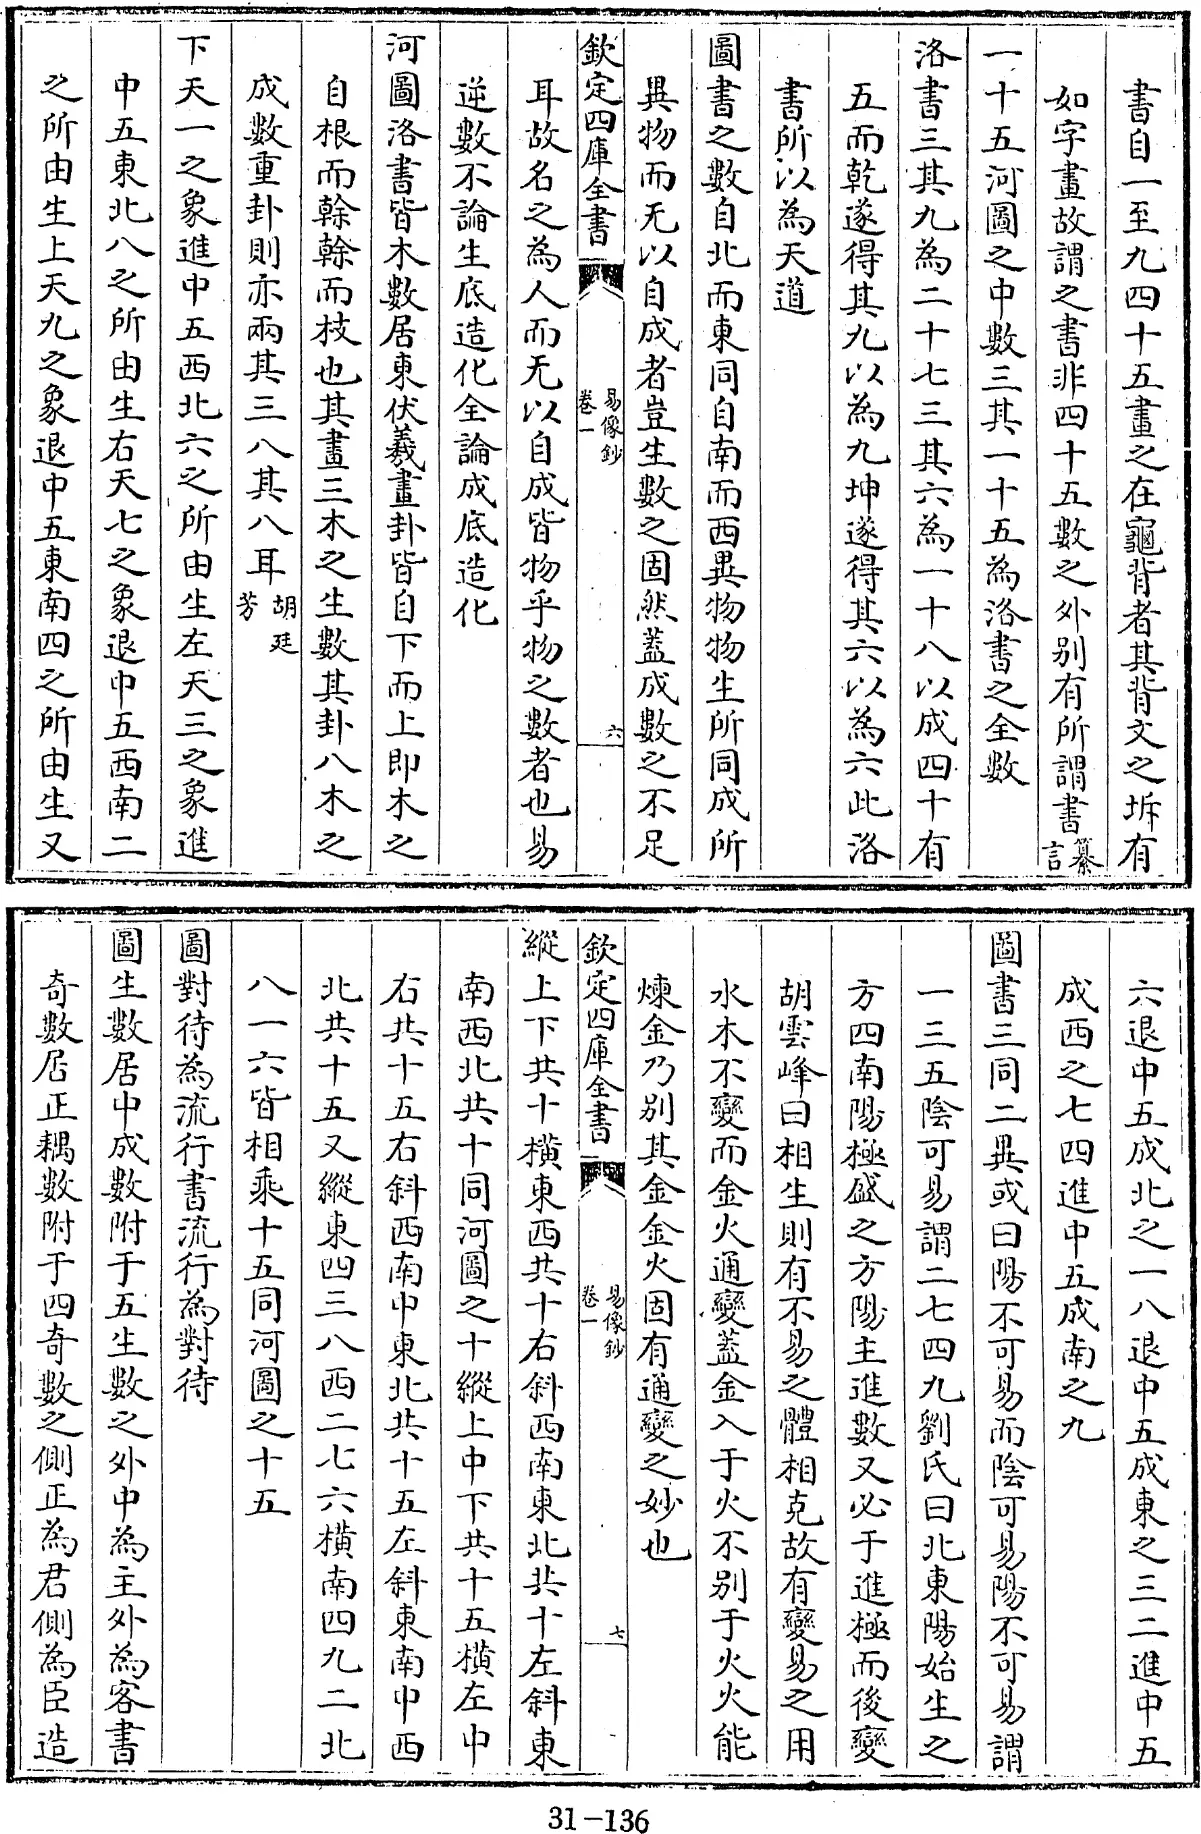 書自一至九四十五畫之在龜背者其背文之坼有
如字畫故謂之書非四十五數之外别有所謂書纂言
一十五河圖之中數三其一十五為洛書之全數
洛書三其九為二十七三其六為一十八以成四十有
五而乾遂得其九以為九坤遂得其六以為六此洛
書所以為天道
圖書之數自北而東同自南而西異物物生所同成所
異物而无以自成者豈生數之固然蓋成數之不足
欽定四庫全書
易像鈔
卷一
六
耳故名之為人而无以自成皆物乎物之數者也易
逆數不論生底造化全論成底造化
河圖洛書皆木數居東伏羲畫卦皆自下而上即木之
自根而榦榦而枝也其畫三木之生數其卦八木之
成數重卦則亦兩其三八其八耳胡廷芳
下天一之象進中五西北六之所由生左天三之象進
中五東北八之所由生右天七之象退中五西南二
之所由生上天九之象退中五東南四之所由生又
六退中五成北之一八退中五成東之三二進中五
成西之七四進中五成南之九
圖書三同二異或曰陽不可易而陰可易陽不可易謂
一三五陰可易謂二七四九劉氏曰北東陽始生之
方四南陽極盛之方陽主進數又必于進極而後變
胡雲峰曰相生則有不易之體相克故有變易之用
水木不變而金火通變蓋金入于火不别于火火能
煉金乃别其金金火固有通變之妙也
欽定四庫全書
易像鈔
卷一
七
縱上下共十橫東西共十右斜西南東北共十左斜東
南西北共十同河圖之十縱上中下共十五橫左中
右共十五右斜西南中東北共十五左斜東南中西
北共十五又縱東四三八西二七六橫南四九二北
八一六皆相乘十五同河圖之十五
圖對待為流行書流行為對待
圖生數居中成數附于五生數之外中為主外為客書
奇數居正耦數附于四奇數之側正為君側為臣造
31-136